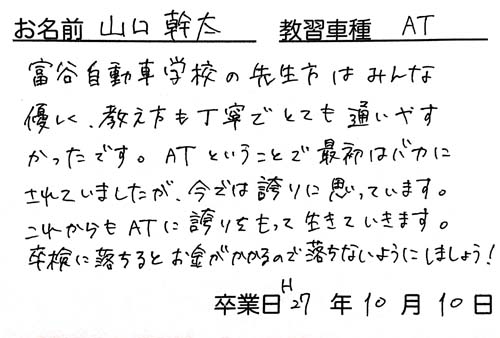 お名前 山口 幹太 教習車種 AT
富谷自動車学校の先生方はみんな
優しく、教え方も丁寧でとても通いやす
かったです。ATということで最初はバカに
されていましたが、今では誇りに思っています。
これからもATに誇りをもって生きていきます。
卒検に落ちるとお金がかかるので落ちないようにしましょう!
卒業日 H27 年 10 月 10 日